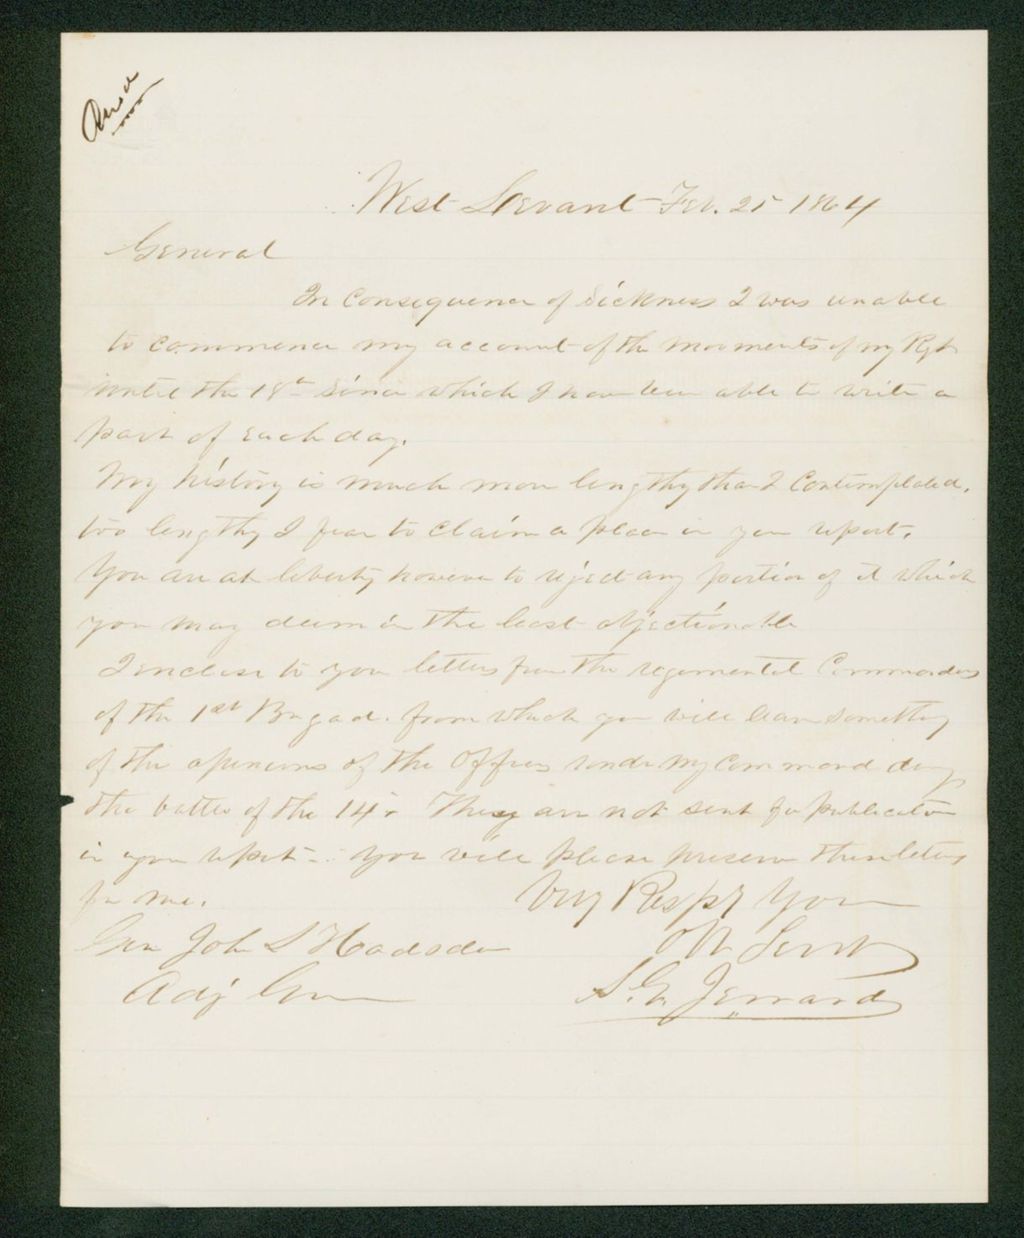 Ansd
West Levant Feb. 25 1864
General
In consequence of sickness I was unable
to commence my account of the movements of my Rgt
until the 18th since which I have been able to write a
part of each day.
My history is much more lengthy than I contemplated,
too lengthy I fear to claim a place in your report.
You are at liberty however to reject any portion of it which
you may deem in the least objectionable
I enclose to you letters from the regimental Commanders
of the 1st Brigade. from which you will learn something
of the opinions of the Officers under my command during
the battle of the 14. They are not sent for publication
in your report - you will please preserve these letters
for me.
Very Respy Your
Obt Servt
Gen John L Hodsdon
Adj Gen
S. G. Jerrard